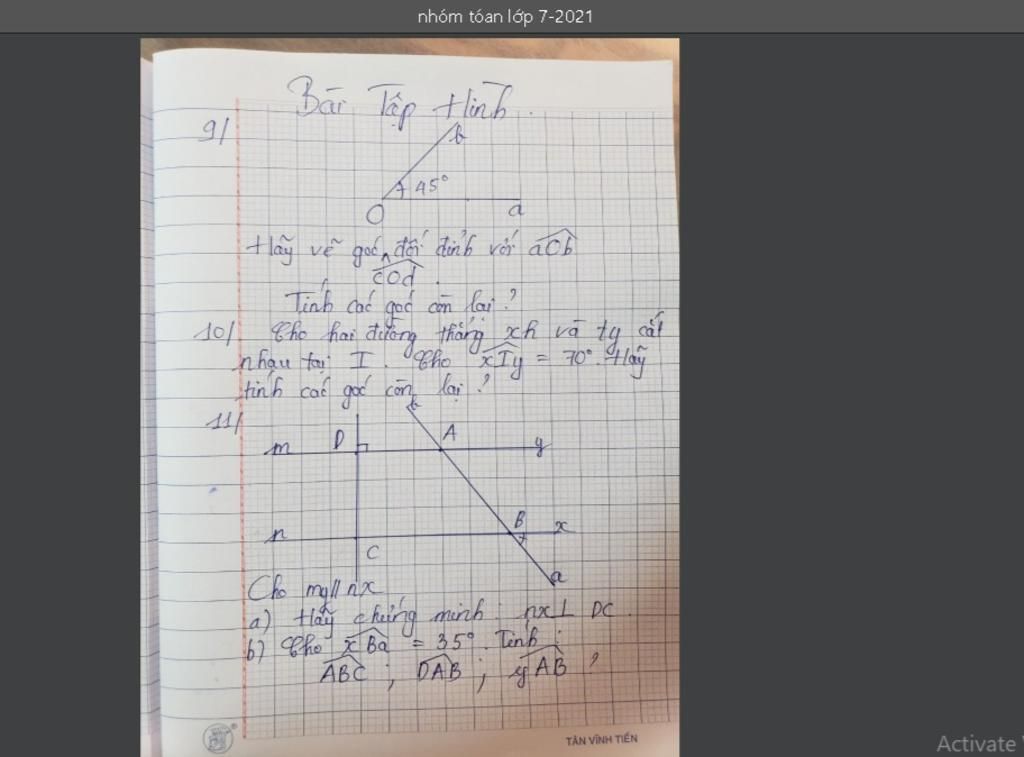 nhóm tóan lớp 7-2021
Bài Tập Hình.
9/
b
45°
O a
Hãy vẽ góc đối đỉnh với aOb
cOd.
Tính các góc còn lại?
10/ Cho hai đường thẳng xh và ty cắt
nhau tại I. Cho xIy = 70°. Hãy
tính các góc còn lại?
11/
m D A y
n C B x
a
Cho my//nx
a) Hãy chứng minh: nx⊥ DC.
b) Cho xBa = 35°. Tính:
ABC; DAB; yAB?
TÂN VĨNH TIẾN
Activate